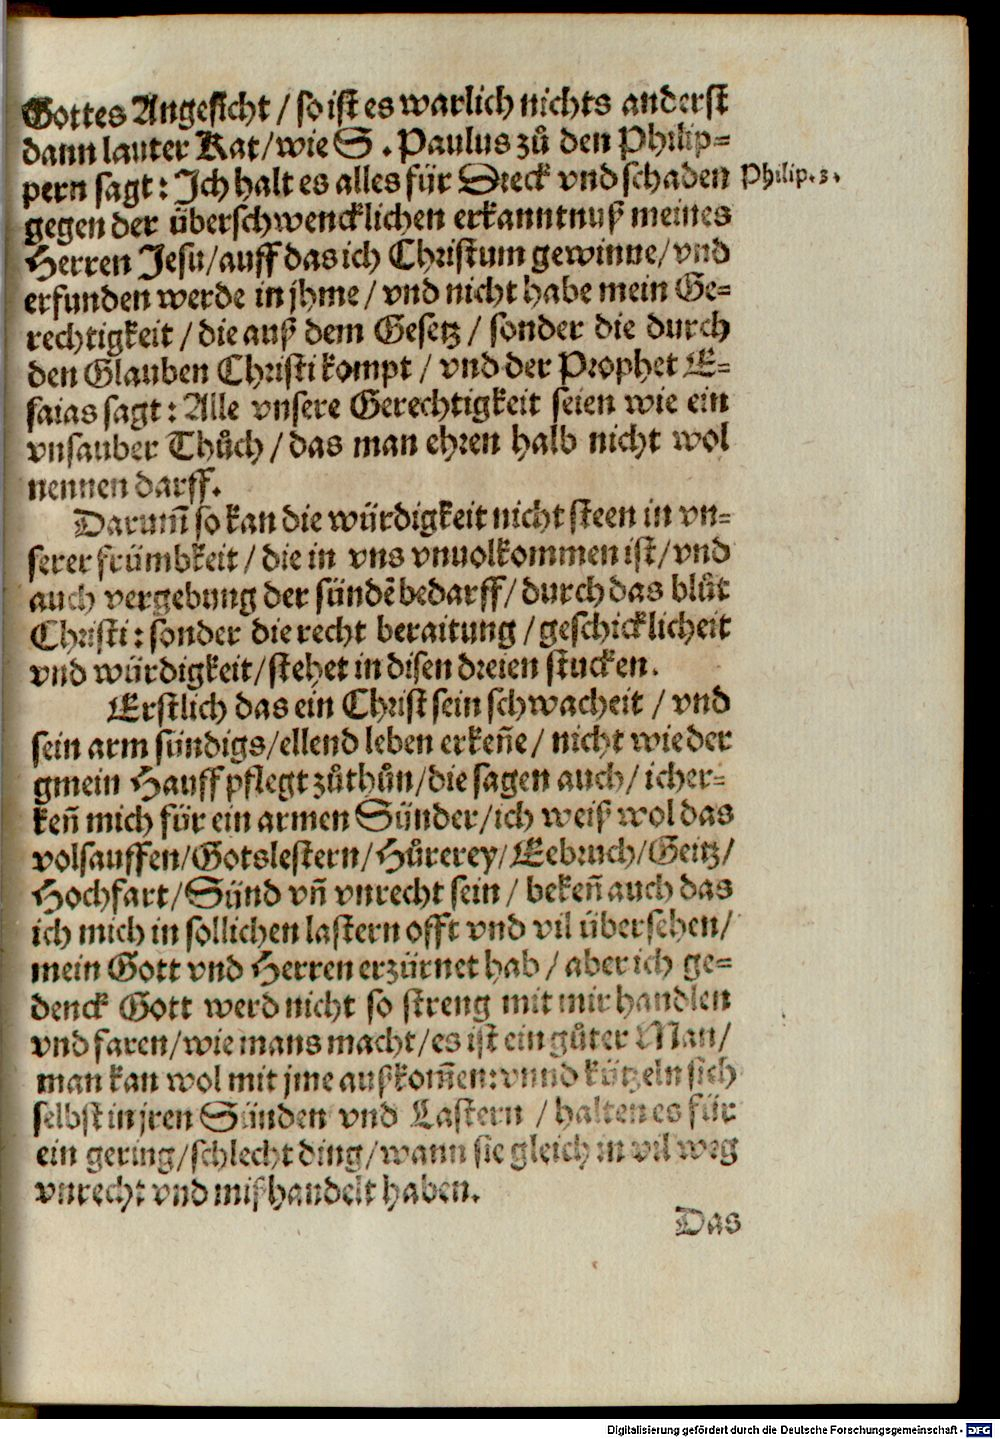 Gottes Angesicht / so ist es warlich nichts anderst
dann lauter Kat / wie S. Paulus zů den Philip=
pern sagt: Jch halt es alles für Dreck vnd schaden
Philip. 3.
gegen der überschwencklichen erkanntnuß meines
Herren Jesu / auff das ich Christum gewinne / vnd
erfunden werde in jhme / vnd nicht habe mein Ge=
rechtigkeit / die auß dem Gesetz / sonder die durch
den Glauben Christi kompt / vnd der Prophet E=
saias sagt: Alle vnsere Gerechtigkeit seien wie ein
vnsauber Thůch / das man ehren halb nicht wol
nennen darff.
Darum̃ so kan die würdigkeit nicht steen in vn=
serer frümbkeit / die in vns vnuolkommen ist / vnd
auch vergebung der sündẽ bedarff / durch das blůt
Christi: sonder die recht beraitung / geschicklicheit
vnd würdigkeit / stehet in disen dreien stucken.
Erstlich das ein Christ sein schwacheit / vnd
sein arm sündigs / ellend leben erkeñe / nicht wie der
gmein Hauff pflegt zůthůn / die sagen auch / ich er=
keñ mich für ein armen Sünder / ich weiß wol das
volsauffen / Gotslestern / Hůrerey / Eebruch / Geitz /
Hochfart / Sünd vñ vnrecht sein / bekeñ auch das
ich mich in sollichen lastern offt vnd vil übersehen /
mein Gott vnd Herren erzürnet hab / aber ich ge=
denck Gott werd nicht so streng mit mir handlen
vnd faren / wie mans macht / es ist ein gůter Man /
man kan wol mit jme außkom̃en: vnnd kützeln sich
selbst in jren Sünden vnd Lastern / halten es für
ein gering / schlecht ding / wann sie gleich in vil weg
vnrecht vnd mißhandelt haben.
Das
Digitalisierung gefördert durch die Deutsche Forschungsgemeinschaft - DFG